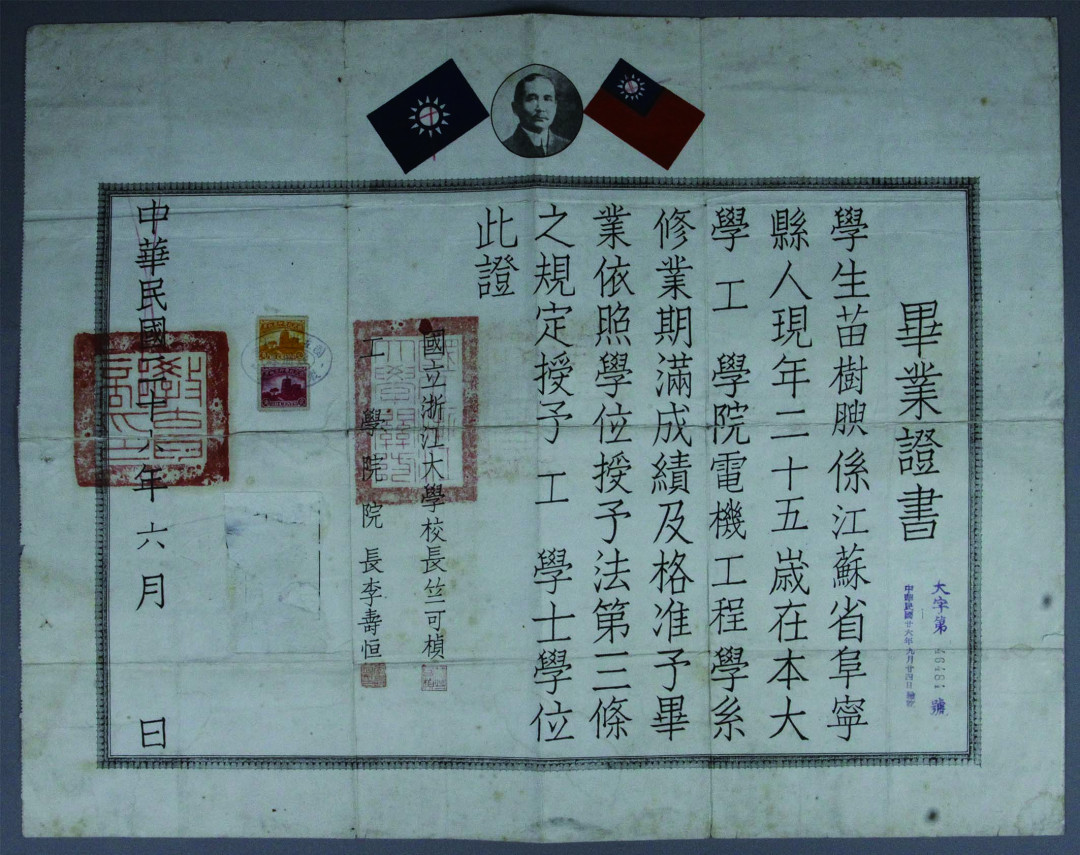 畢業證書
大字第 號
中華民國廿六年九月廿四日驗訖
學生苗樹腴係江蘇省阜寧
縣人現年二十五歲在本大
學工學院電機工程學系
修業期滿成績及格准予畢
業依照學位授予法第三條
之規定授予工學士學位
此證
國立浙江大學校長竺可楨
工學院院長李壽恒
中華民國二十六年六月 日